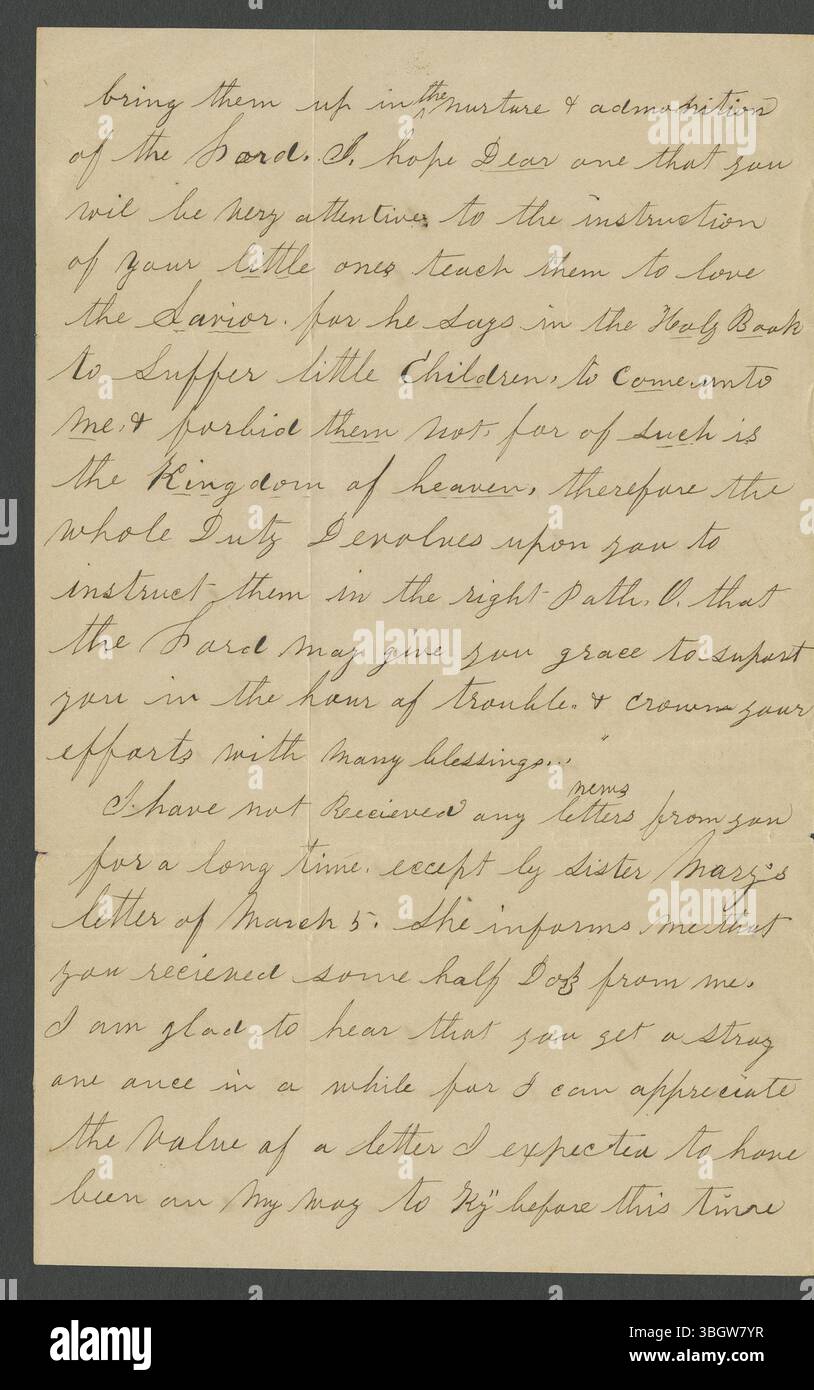 bring them up in the nurture & admonition
of the Lord. I. hope Dear one that you
wil be very attentive to the instruction
of your little ones teach them to love
the Savior. for he says in the Holy Book
to Suffer little Children, to Come unto
me, & forbid them not, for of such is
the Kingdom of heaven, therefore the
whole Duty Devolves upon you to
instruct them in the right Path, O. that
the Lord may give you grace to suport
you in the hour of trouble. & crown your
efforts with many blessings...
I have not Recieved any news letters from you
for a long time. eccept by sister Mary's
letter of March 5. She informs me that
you recieved some half Doz from me.
I am glad to hear that you get a stray
one once in a while for I can appreciate
the value of a letter I expected to have
been on my way to Ky" before this time
alamy
Image ID: 3BGW7YR
www.alamy.com